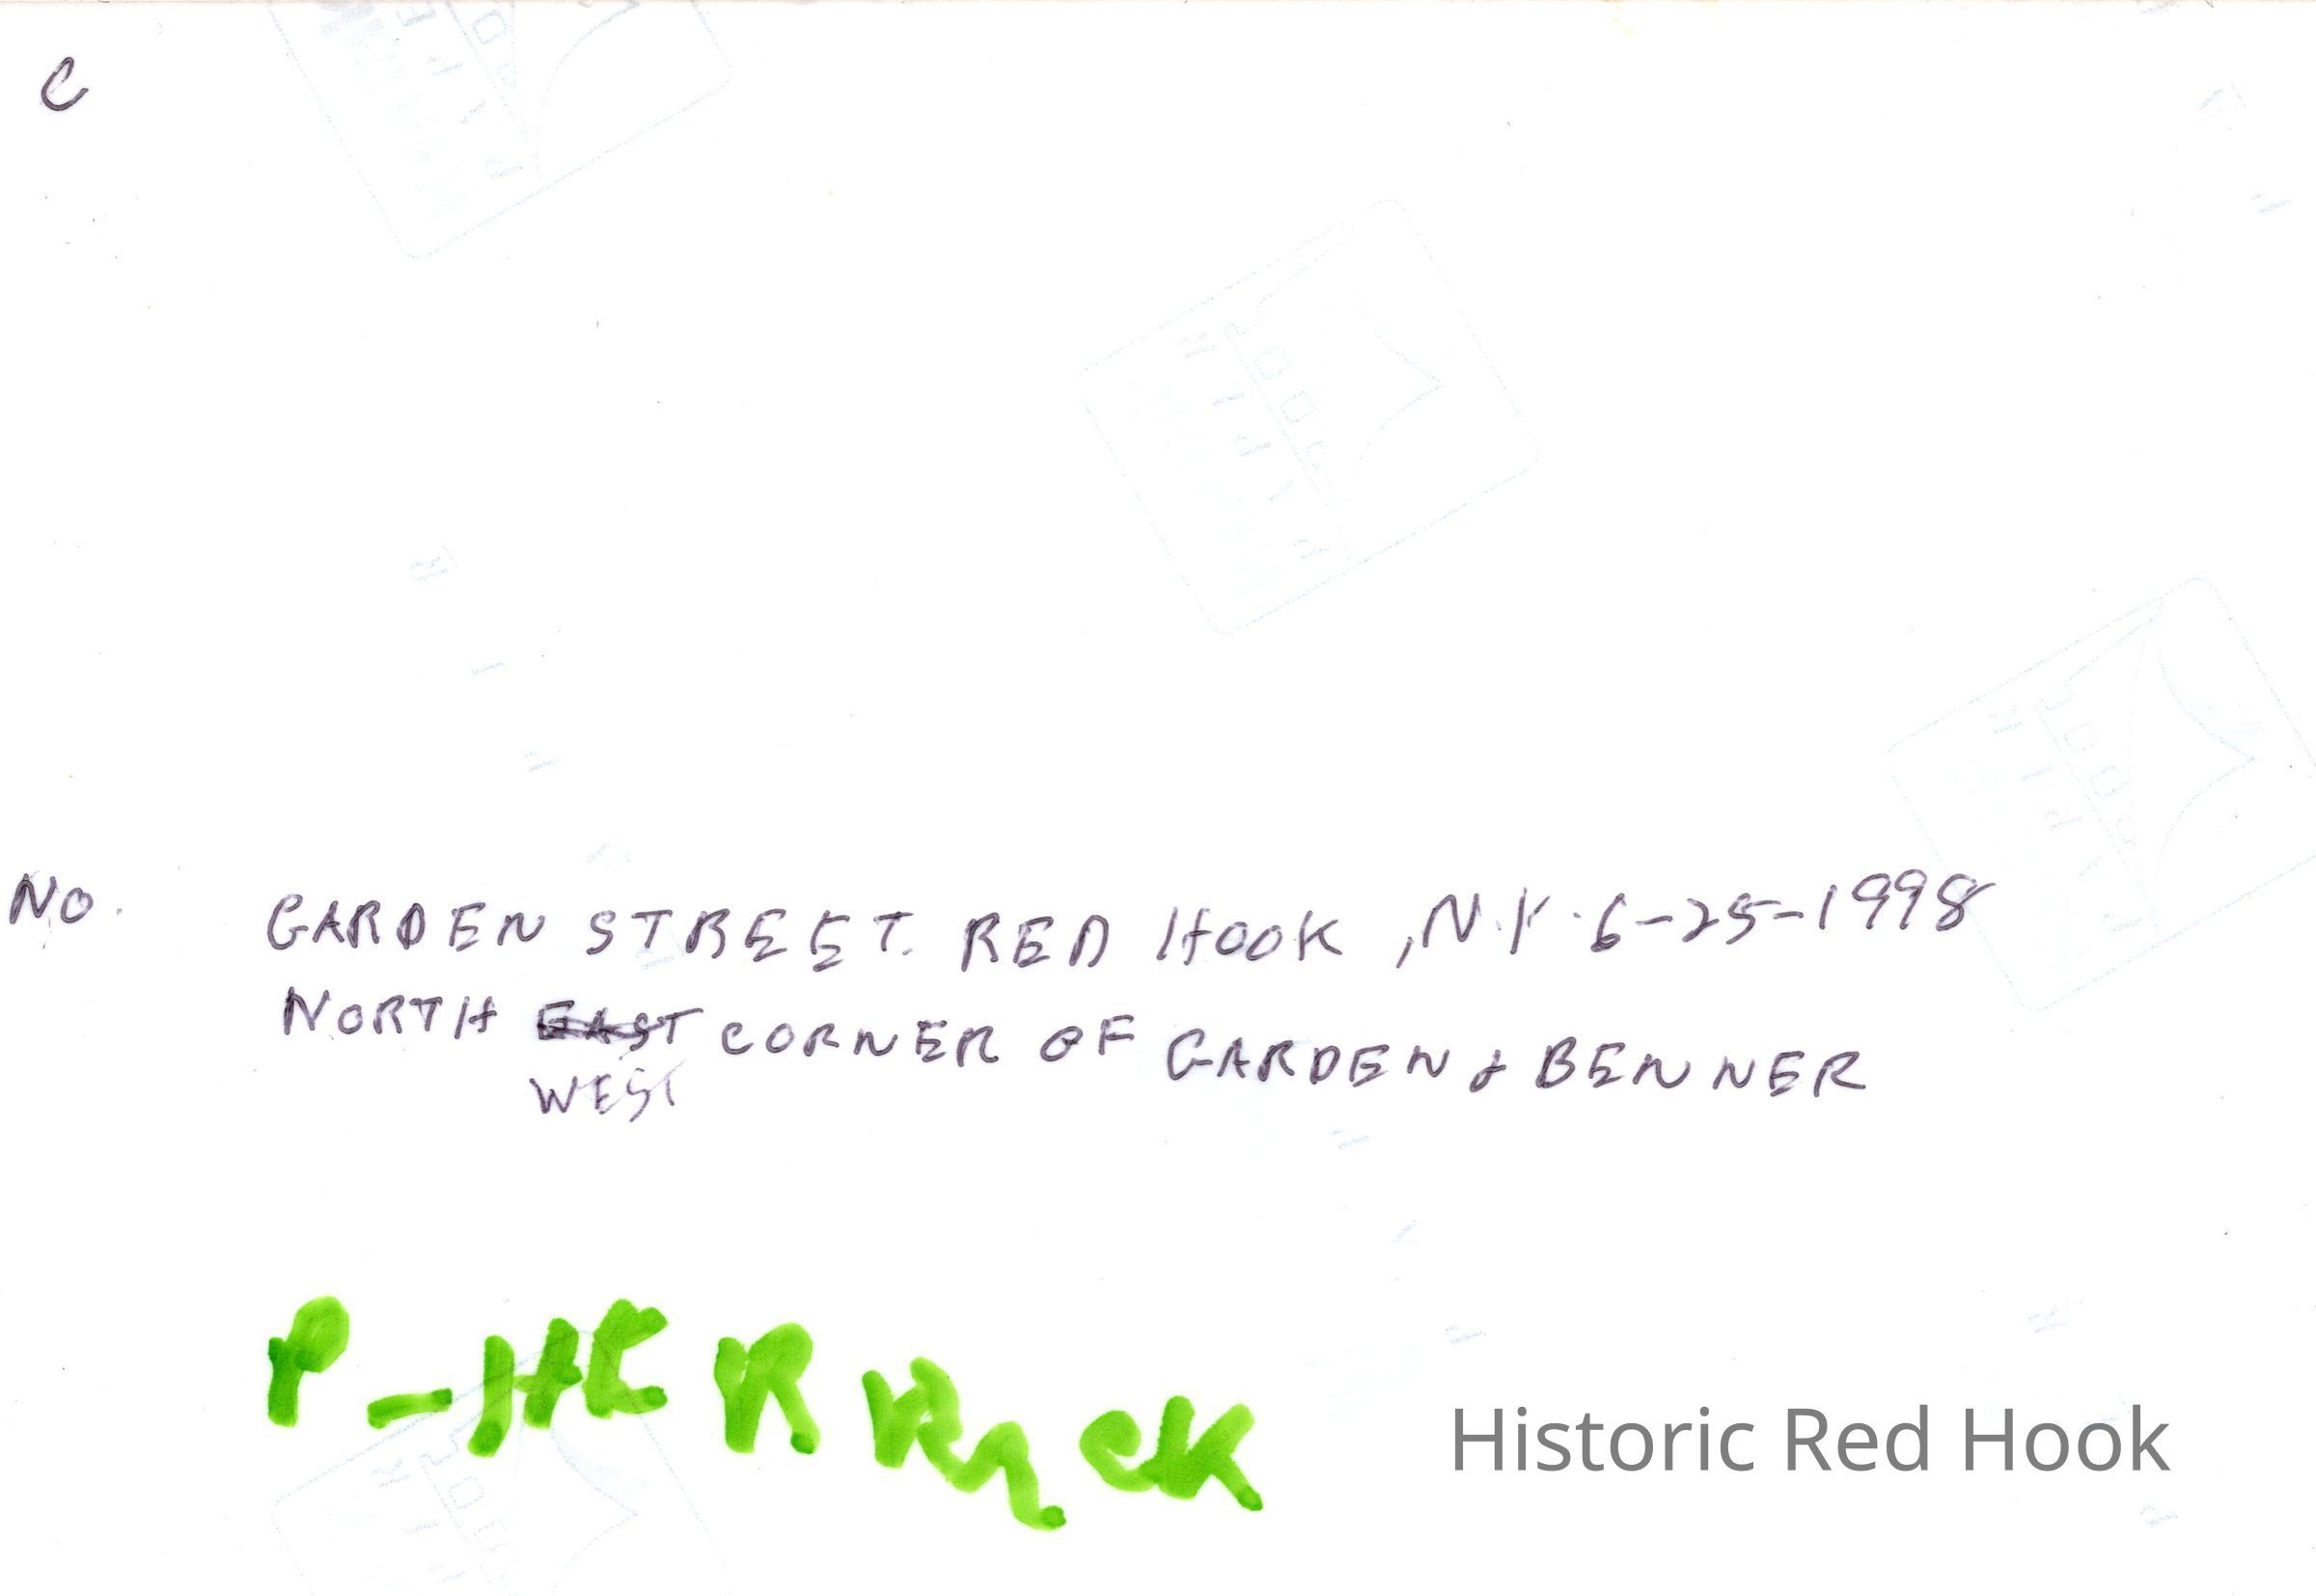 C
NO. GARDEN STREET. RED HOOK, N.Y. 6-25-1998
NORTH EAST CORNER OF GARDEN & BENNER
WEST
Historic Red Hook